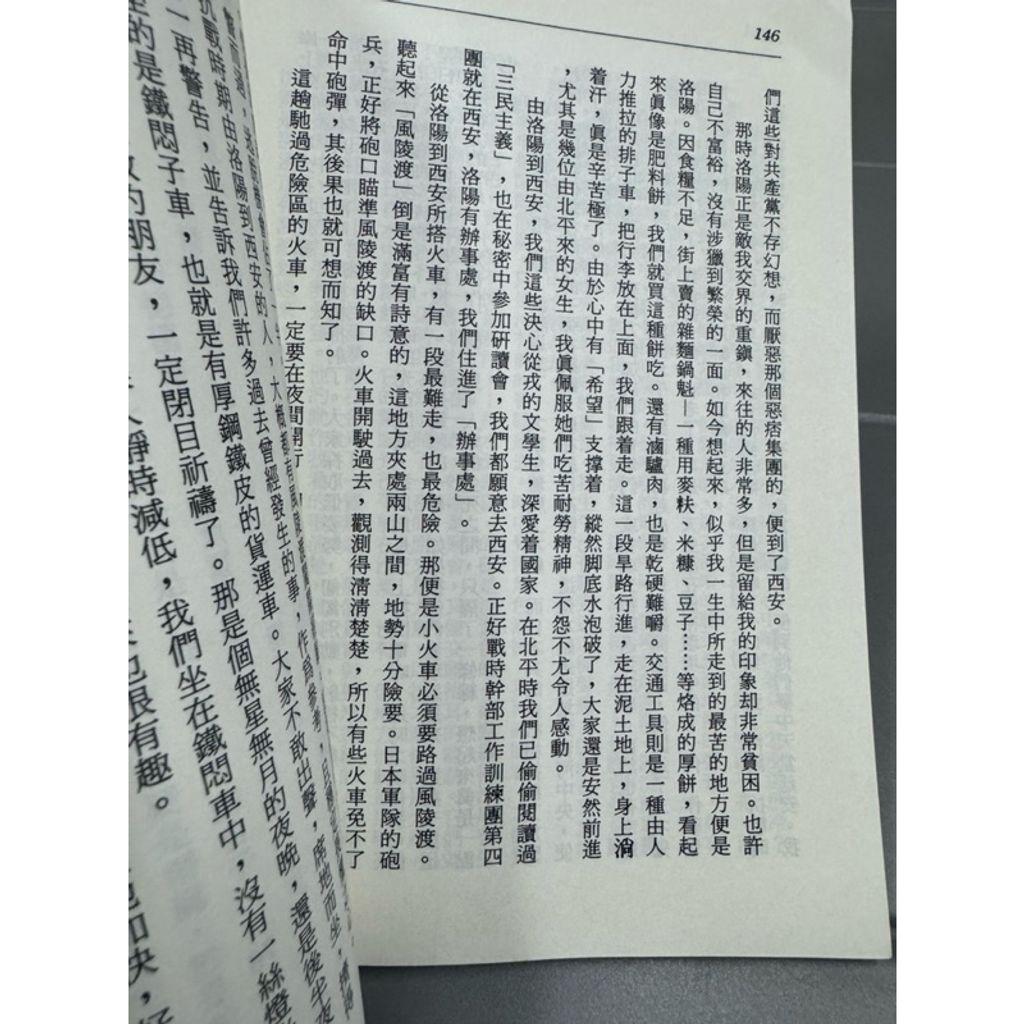 146
們這些對共產黨不存幻想，而厭惡那個惡痞集團的，便到了西安。
那時洛陽正是敵我交界的重鎮，來往的人非常多，但是留給我的印象却非常貧困。也許
自己不富裕，沒有涉獵到繁榮的一面。如今想起來，似乎我一生中所走到的最苦的地方便是
洛陽。因食糧不足，街上賣的雜麵鍋魁—一種用麥麩、米糠、豆子……等烙成的厚餅，看起
來眞像是肥料餅，我們就買這種餅吃。還有滷驢肉，也是乾硬難嚼。交通工具則是一種由人
力推拉的排子車，把行李放在上面，我們跟着走。這一段旱路行進，走在泥土地上，身上淌
着汗，眞是辛苦極了。由於心中有「希望」支撐着，縱然脚底水泡破了，大家還是安然前進
，尤其是幾位由北平來的女生，我眞佩服她們吃苦耐勞精神，不怨不尤令人感動。
由洛陽到西安，我們這些決心從戎的文學生，深愛着國家。在北平時我們已偷偷閱讀過
「三民主義」，也在秘密中參加硏讀會，我們都願意去西安。正好戰時幹部工作訓練團第四
團就在西安，洛陽有辦事處，我們住進了「辦事處」。
從洛陽到西安所搭火車，有一段最難走，也最危險。那便是小火車必須要路過風陵渡。
聽起來「風陵渡」倒是滿富有詩意的，這地方夾處兩山之間，地勢十分險要。日本軍隊的砲
兵，正好將砲口瞄準風陵渡的缺口。火車開駛過去，觀測得淸淸楚楚，所以有些火車免不了
命中砲彈，其後果也就可想而知了。
這趟馳過危險區的火車，一定要在夜間開行
抗戰時期由洛陽到西安的人，大概都有風陵渡
一再警告，並告訴我們許多過去曾經發生的事，作爲參考，
的是鐵悶子車，也就是有厚鋼鐵皮的貨運車。大家不敢出聲，席地而坐，
的朋友，一定閉目祈禱了。那是個無星無月的夜晚，還是後半夜
靜時減低，我們坐在鐵悶車中，沒有一絲燈
也很有趣。